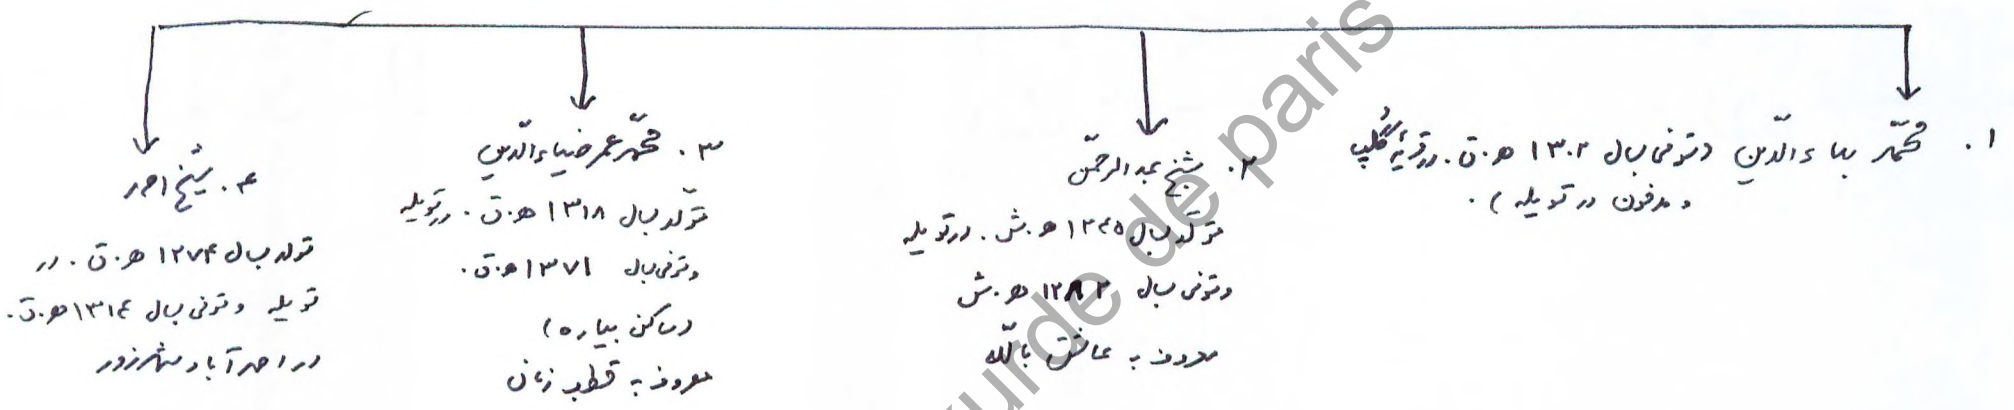 ۱. محمّد بهاءالدّین (متوفی بسال ۱۳۰۲ ه.ق. در قریهٔ گُلپ
و مدفون در تویله).
۲. شیخ عبدالرحمّن
متولّد بسال ۱۲٤۵ ه.ش. در تویله
و متوفی بسال ۱۲۸۲ ه.ش
معروف به عاشق باللّه
۳. محمّد عمر ضیاءالدّین
متولّد بسال ۱۳۱۸ ه.ق. در تویله
و متوفی بسال ۱۳۷۱ ه.ق.
(ساکن بیاره)
معروف به قطب زمان
۴. شیخ احمد
تولد بسال ۱۲۷۴ ه.ق. در
تویله و متوفی بسال ۱۳۱٤ ه.ق.
در احمدآباد شهرزور
urde de paris